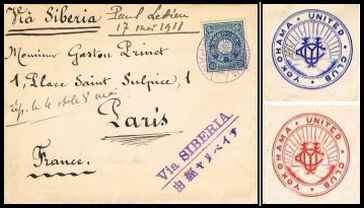 Via Siberia
Paul Ledieu
17 mai 1911
Monsieur Gaston Prinet
1, Place Saint Sulpice, 1
Paris
France.
Via SIBERIA
由經ヤリベイサ
YOKOHAMA UNITED CLUB
YOKOHAMA UNITED CLUB